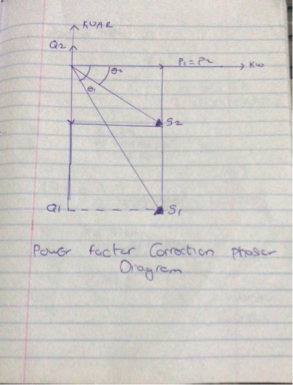 KVAR
Q2
P1=P2
KW
θ2
θ1
S2
Q1
S1
Power factor Correction phasor
Diagram